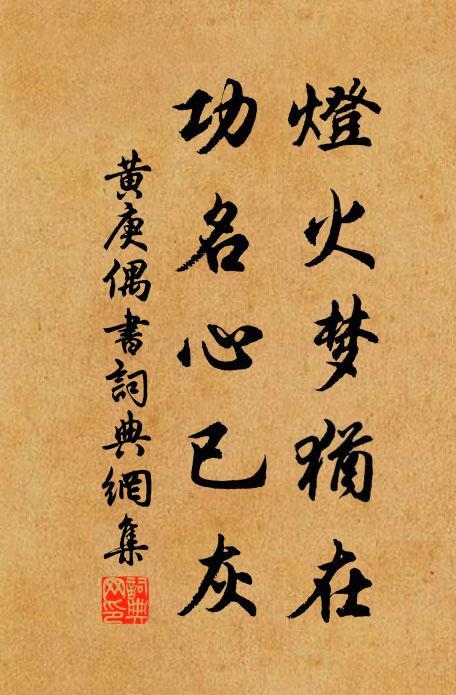 燈火梦猶在
功名心已灰
黃庚偶書詞典網集
詞典
网印